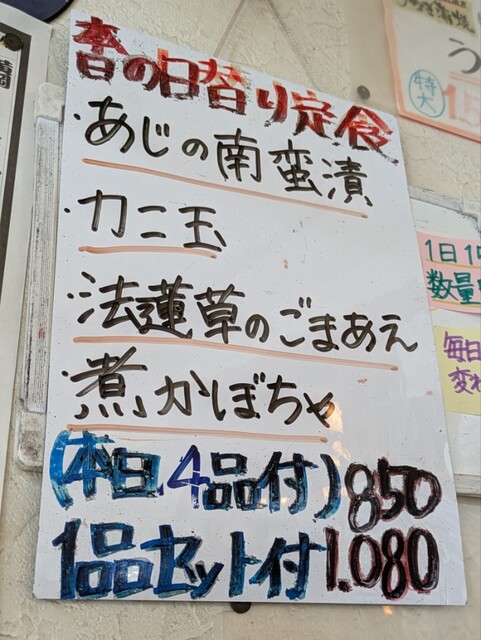 本日の日替り定食
・あじの南蛮漬
・カニ玉
・法蓮草のごまあえ
・煮かぼちゃ
(本日4品付)850
1品セット付1.080
特大
1日1
数量
毎日
変わ